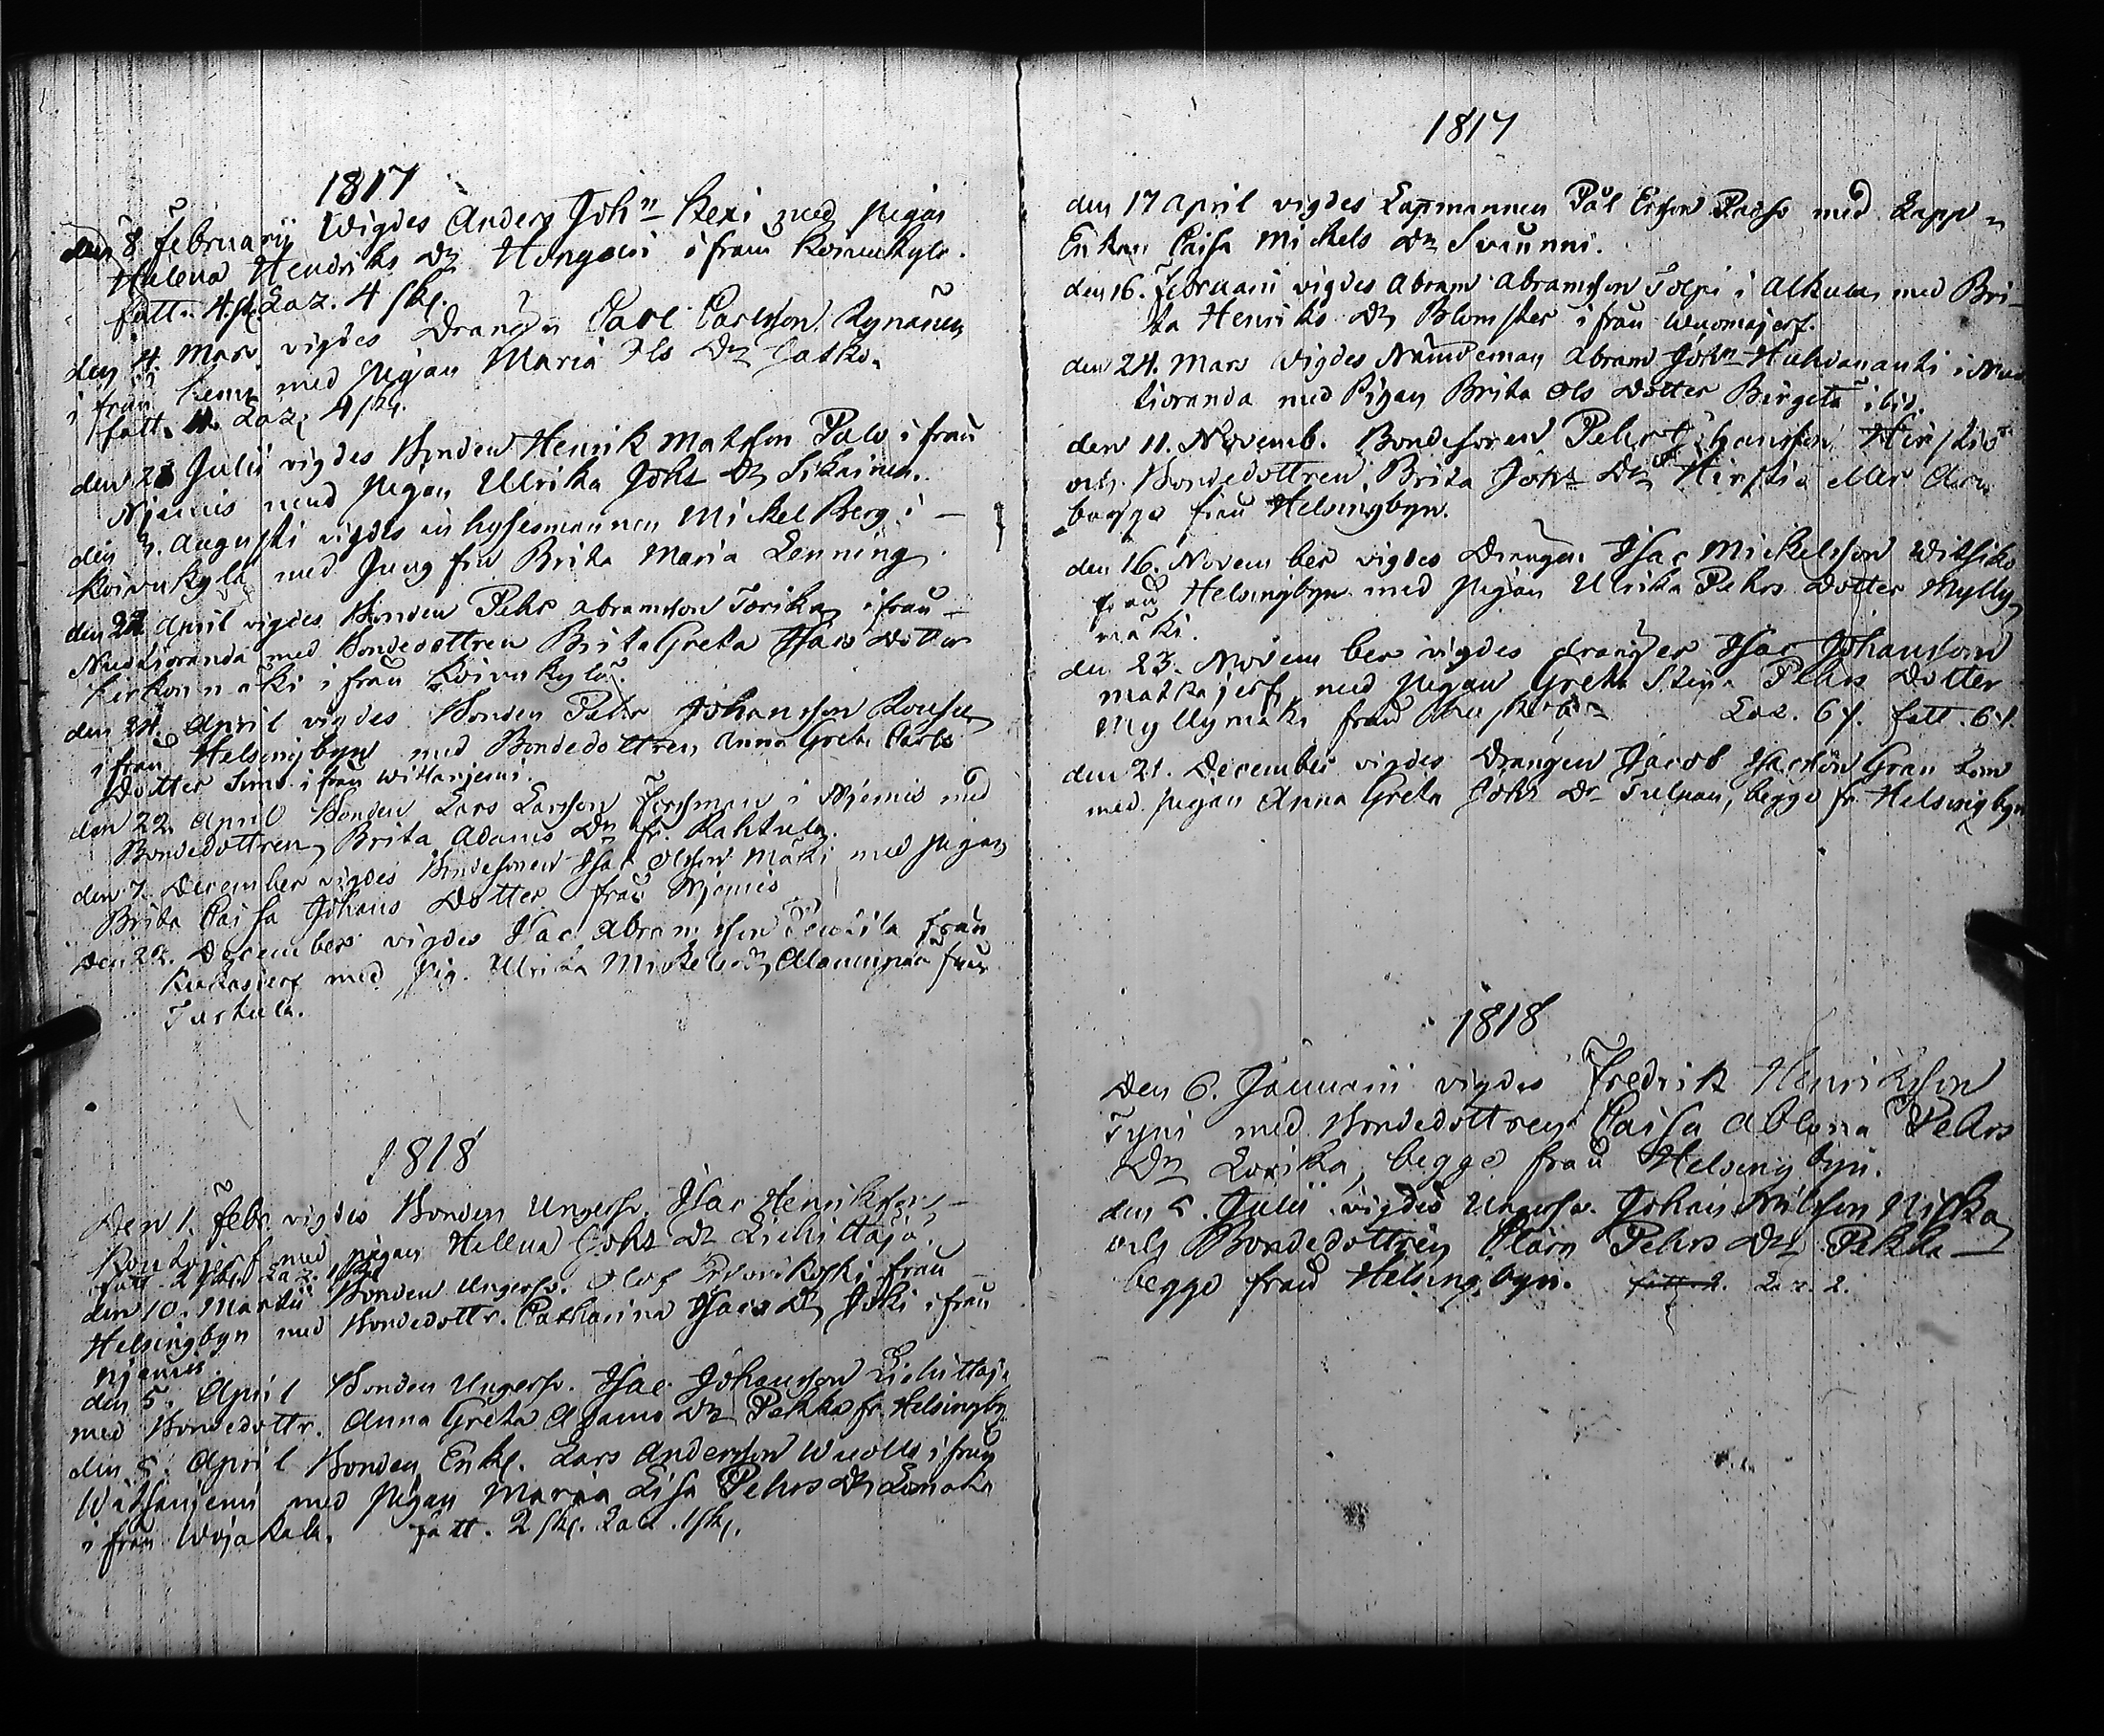 1817
den 8 Februarii Wigdes Anders Joh:n Kexi med pigan
Helena Hendriks Dr Hongaini ifrån Koivukylä.
fatt. 4 sk Laz. 4 sk.
den 4. Mars vigdes Drängen Carl Carlsson Kynänen
ifrån Kemi med pigan Maria Ils Dr Latko.
fatt. 4. Laz. 4 sk.
den Julii vigdes Bonden Henrik Matsson Palo ifrån
Njemis med pigan Ulrika Johs Dr Sikainen.
den 3. Augusti vigdes inhysesmannen Mickel Berg i
Koivukylä med Jungfru Brita Maria Lenning.
den 22 April vigdes Bonden Pehr Abramsson Torikka ifrån
Nuotioranda med Bondedottren Brita Greta Isacs Dotter
Kirkonmäki ifrån Koivukylä.
den 24. April vigdes Bonden Pehr Johansson Rousu
ifrån Helsingbyn med Bondedottren Anna Greta Carls
Dotter Simo ifrån Witsanjemi.
den 22. April Bonden Lars Larsson Forssman i Njemis med
Bondedottren Brita Adams Dr fr. Rantula.
den 7. December vigdes Bondesonen Isac Olsson Mäki med pigan
Brita Caisa Johans Dotter från Njemis
den 22. December vigdes Isac Abramsson från
Kuckasjerf med pig. Ulrika Mickels Dr Alaumpää från
Turtula.
1818
Den 1. Febr. vigdes Bonden Ungersv. Isac Henriksson
Koutojerf med pigan Hellena Johs Dr Liehittäjä.
fatt 2 sk. Laz. 1 sk
den 10. Martii Bonden Ungersv. Olof från
Helsingbyn med Bondedottr. Catharina Isacs Dr Joki ifrån
Njemis.
den 5. April Bonden Ungersv. Isac Johansson Liehittäjä
med Bondedottr. Anna Greta Adams Dr Pekka fr Helsingby
den 5. April Bonden Enkl. Lars Andersson Wuollo ifrån
Witsanjemi med pigan Maria Lisa Pehrs Dr
ifrån Wojakala. fatt. 2 sk. Laz. 1 sk.
1817
den 17 April vigdes Lapmannen Pål Ersson Passo med Lapp
Enkan Caisa Mickels Dr Svaunni.
den 16. Februarii vigdes Abram Abramsson Tolpi i Alkula, med Bri-
ta Henriks Dr Blomster ifrån Wuomajerf.
den 24. Mars vigdes Nämdeman Abram Joh:n Huhdananti i Nuo
tioranda med Pigan Brita Ols Dotter Birgetä ibid.
den 11. Novemb. Bondesonen Pehr Johansson Hirstiö
och Bondedottren Brita Johs Dr Hirstiö eller
bägge från Helsingbyn.
den 16. November vigdes Drängen Isac Mickelsson Witsiko
från Helsingbyn med pigan Ulrika Pehrs Dotter Mylly
mäki.
den 23. November vigdes drängen Isac Johansson
Matkajerf med pigan Greta Stina Pehrs Dotter
Myllymäki från Laz. 6 s. fatt. 6 s.
den 21. December vigdes Drängen Jacob Isacsson Gran
med pigan Anna Greta Johs Dr Tulpan, begge fr Helsingbyn
1818
Den 6. Januarii vigdes Fredrik Henriksson
Tyni med Bondedottren Caisa Ablona Pehrs
Dr Lovikka, begge från Helsingbyn.
den 5. Julii vigdes Ungersv. Johan Nilsson Niska
och Bondedottren Clara Pehrs Dr Pekka
begge från Helsingbyn. fatt 2. Laz. 2.